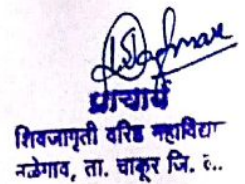 प्राचार्य
शिवजागृती वरिष्ठ महाविद्या
नळेगाव, ता. चाकूर जि.